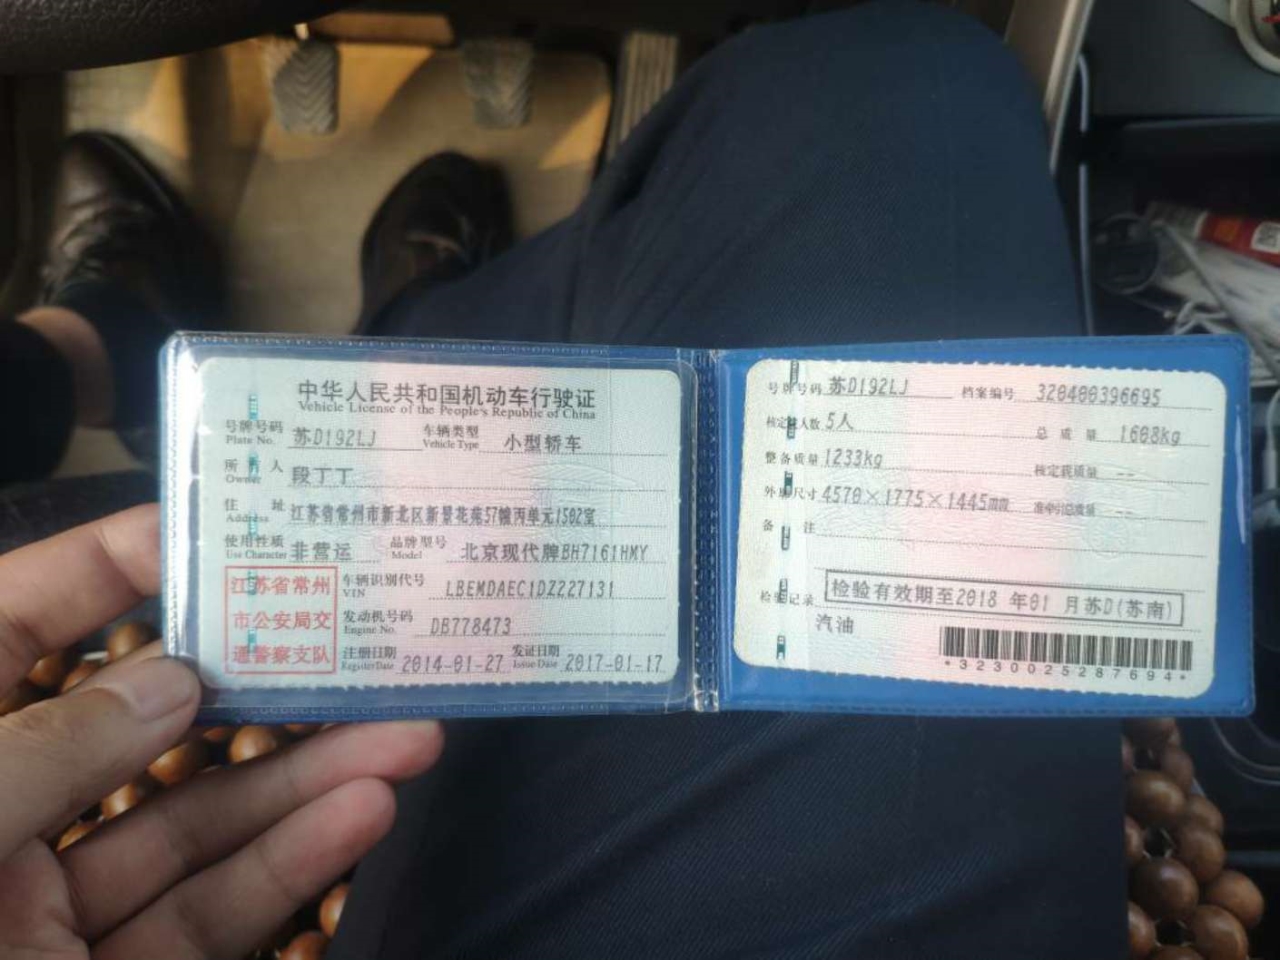 中华人民共和国机动车行驶证
Vehicle License of the People's Republic of China
号牌号码 Plate No. 苏D192LJ 车辆类型 Vehicle Type 小型轿车
所有人 Owner 段丁丁
住址 Address 江苏省常州市新北区新景花苑57幢丙单元1502室
使用性质 Use Character 非营运 品牌型号 Model 北京现代牌BH7161HMY
江苏省常州
市公安局交
通警察支队
车辆识别代号 VIN LBEMDAEC1DZ227131
发动机号码 Engine No. DB778473
注册日期 Register Date 2014-01-27 发证日期 Issue Date 2017-01-17
号牌号码 苏D192LJ 档案编号 320400396695
核定载人数 5人 总质量 1608kg
整备质量 1233kg 核定载质量 --
外廓尺寸 4570×1775×1445mm 准牵引总质量 --
备注
检验记录 检验有效期至2018年01月苏D(苏南)
汽油
*3230025287694*